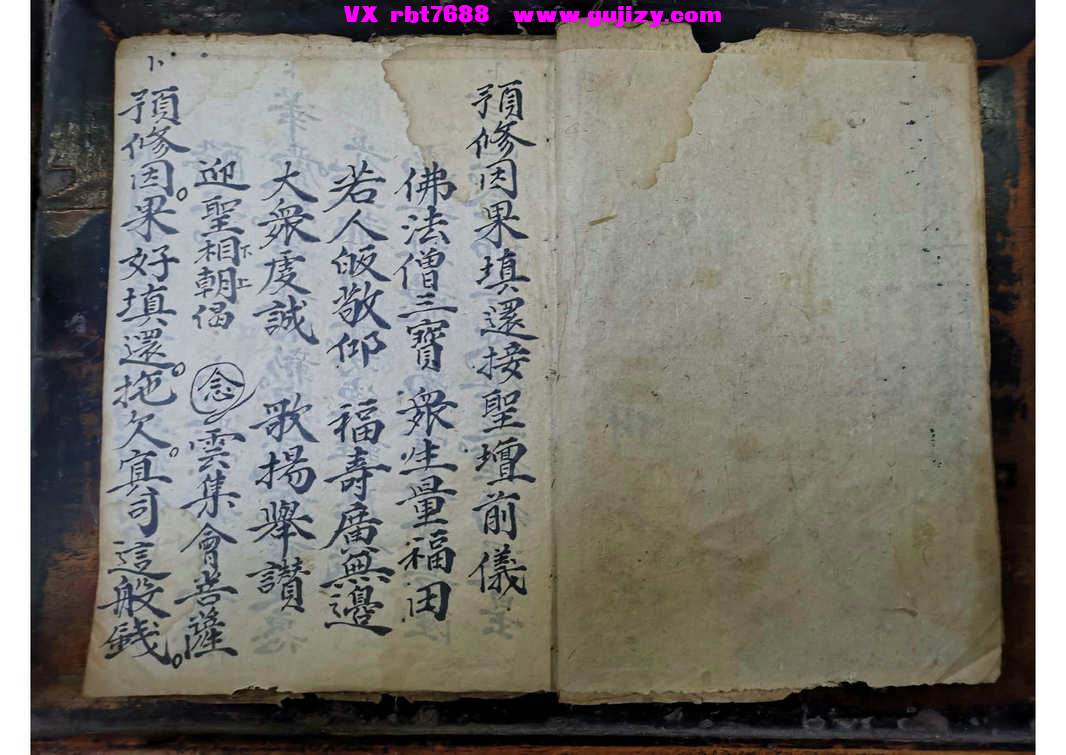 VX rbt7688 www.gujizy.com
預修因果填還接聖壇前儀
佛法僧三寶 眾生量福田
若人皈敬仰 福壽廣無邊
大眾虔誠 歌揚舉讃
迎聖相下朝上偈 念 雲集會菩薩
預修因。果好填還。拖欠。寘司這般錢。